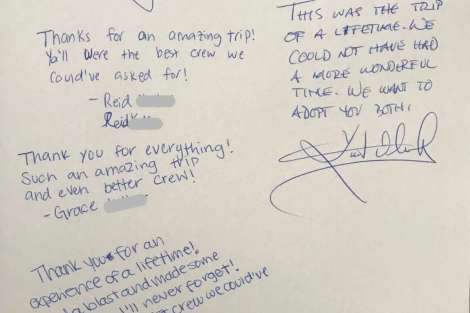 Thanks for an amazing trip!
Ya'll were the best crew we
could've asked for!
- Reid
Reid
Thank you for everything!
Such an amazing trip
and even better crew!
- Grace
Thank you for an
experience of a lifetime!
a blast and made some
I'll never forget!
crew we could've
THIS WAS THE TRIP
OF A LIFETIME. WE
COULD NOT HAVE HAD
A MORE WONDERFUL
TIME. WE WANT TO
ADOPT YOU BOTH.